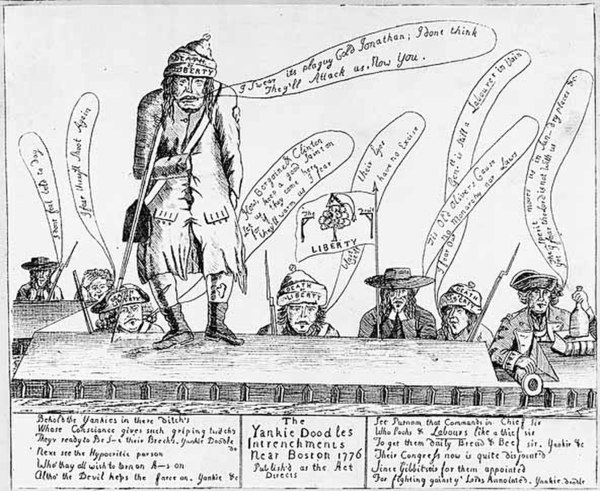 I Swear its plaguy Cold Jonathan; I dont think
They'll Attack us, Now You.
DEATH
or
LIBERTY
I fear they'll Shoot Again
I feel Cold to Day
Now, Bergoine & Clinton
is a good Jami on
but as they come here
they'll warm us I fear
their Eyes
have no Excise
The
LIBERTY
Genel. is still a Labourer in Vain
The Old Olivers Cause
I fear No Monarchy nor Laws
moves us in Jan. dry places &c.
fear the Lord is not With us
DEATH
or
LIBERTY
DEATH
or
Behold the Yankies in there ditch's
Whose Conscience gives such griping twitch's
They'r ready to Be S—t their Brech's. Yankie Doodle do
Next see the Hypocritic parson
Who thay all wish to turn an A—s on
Altho the Devil keeps the farce on. Yankie &c
The
Yankie Doodles
Intrenchments
Near Boston 1776
Publish'd as the Act
Directs
See Putnam that Commands in Chief Sir
Who Looks & Labours like a thief sir
To get them daily Bread & Beef sir. Yankie &c
Their Congress now is quite disjoint'd
Since Gibbits is for them appointed
For fighting gainst ye Lords Annointed. Yankie dodle